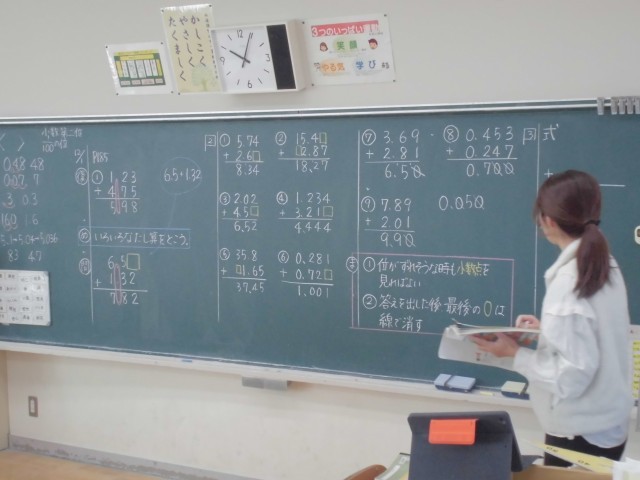 かしこく
やさしく
たくましく
3つのいっぱい運動
笑顔
やる気 学び
小数第二位
100の位
0.48 48
P/8155
① 1.23
+ 4.75
5.98
6.5+1.32
いろいろなたし算をとこう。
6.5□
+ 1.32
7.82
2
① 5.74
+ 2.6□
8.34
② 15.4□
+ □2.87
18.27
③ 2.02
+ 4.5□
6.52
④ 1.234
+ 3.21□
4.444
⑤ 35.8
+ □1.65
37.45
⑥ 0.281
+ 0.72□
1.001
⑦ 3.69
+ 2.81
6.50
⑧ 0.453
+ 0.247
0.700
⑨ 7.89
+ 2.01
9.90
0.050
3 式
+
① 位がずれそうな時も小数点を
見ればよい
② 答えを出した後最後の0は
線で消す